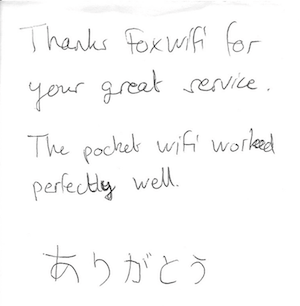 Thanks Foxwifi for
your great service.
The pocket wifi worked
perfectly well.
ありがとう